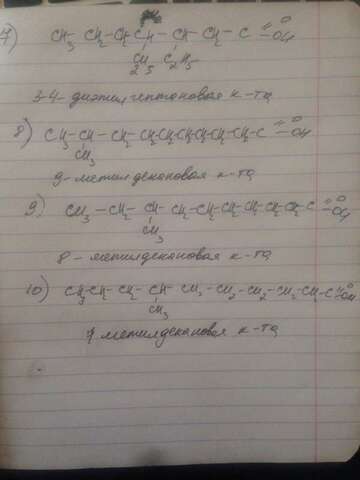 7) CH3 - CH2 - CH2 - CH - CH - CH2 - C =O -OH
C2H5 C2H5
3-4-диэтилгептановая к-та
8) CH3-CH-CH2-CH2-CH2-CH2-CH2-CH2-CH2-C =O -OH
CH3
9-метилдекановая к-та
9) CH3-CH2-CH-CH2-CH2-CH2-CH2-CH2-CH2-C =O -OH
CH3
8-метилдекановая к-та
10) CH3-CH2-CH2-CH-CH2-CH2-CH2-CH2-CH2-C =O -OH
CH3
7 метилдекановая к-та